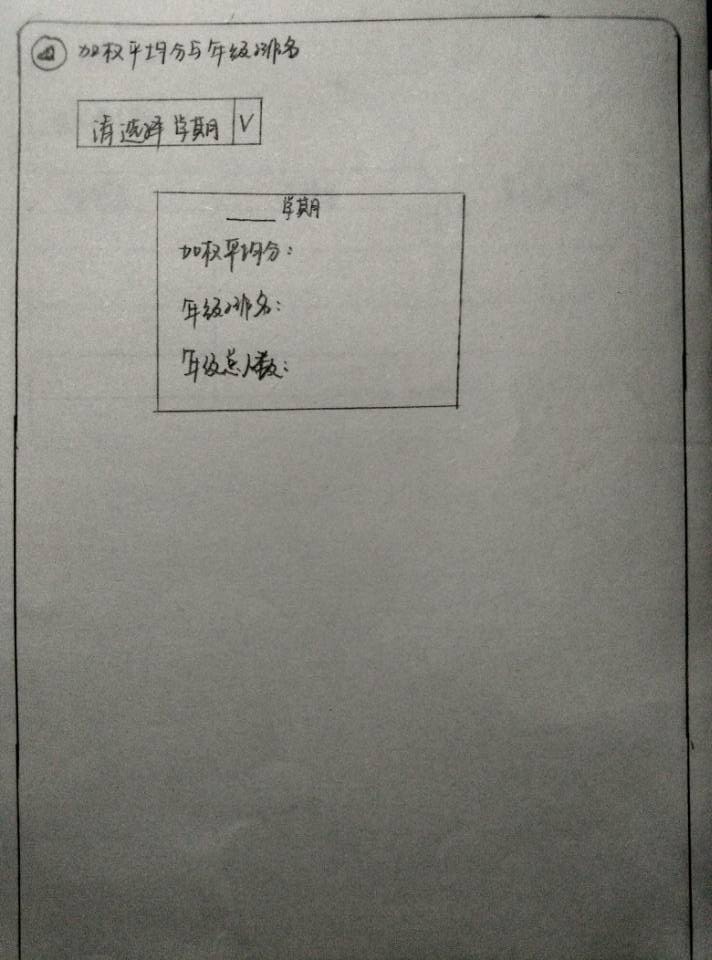 加权平均分与年级排名
请选择学期 V
____学期
加权平均分:
年级排名:
年级总人数: